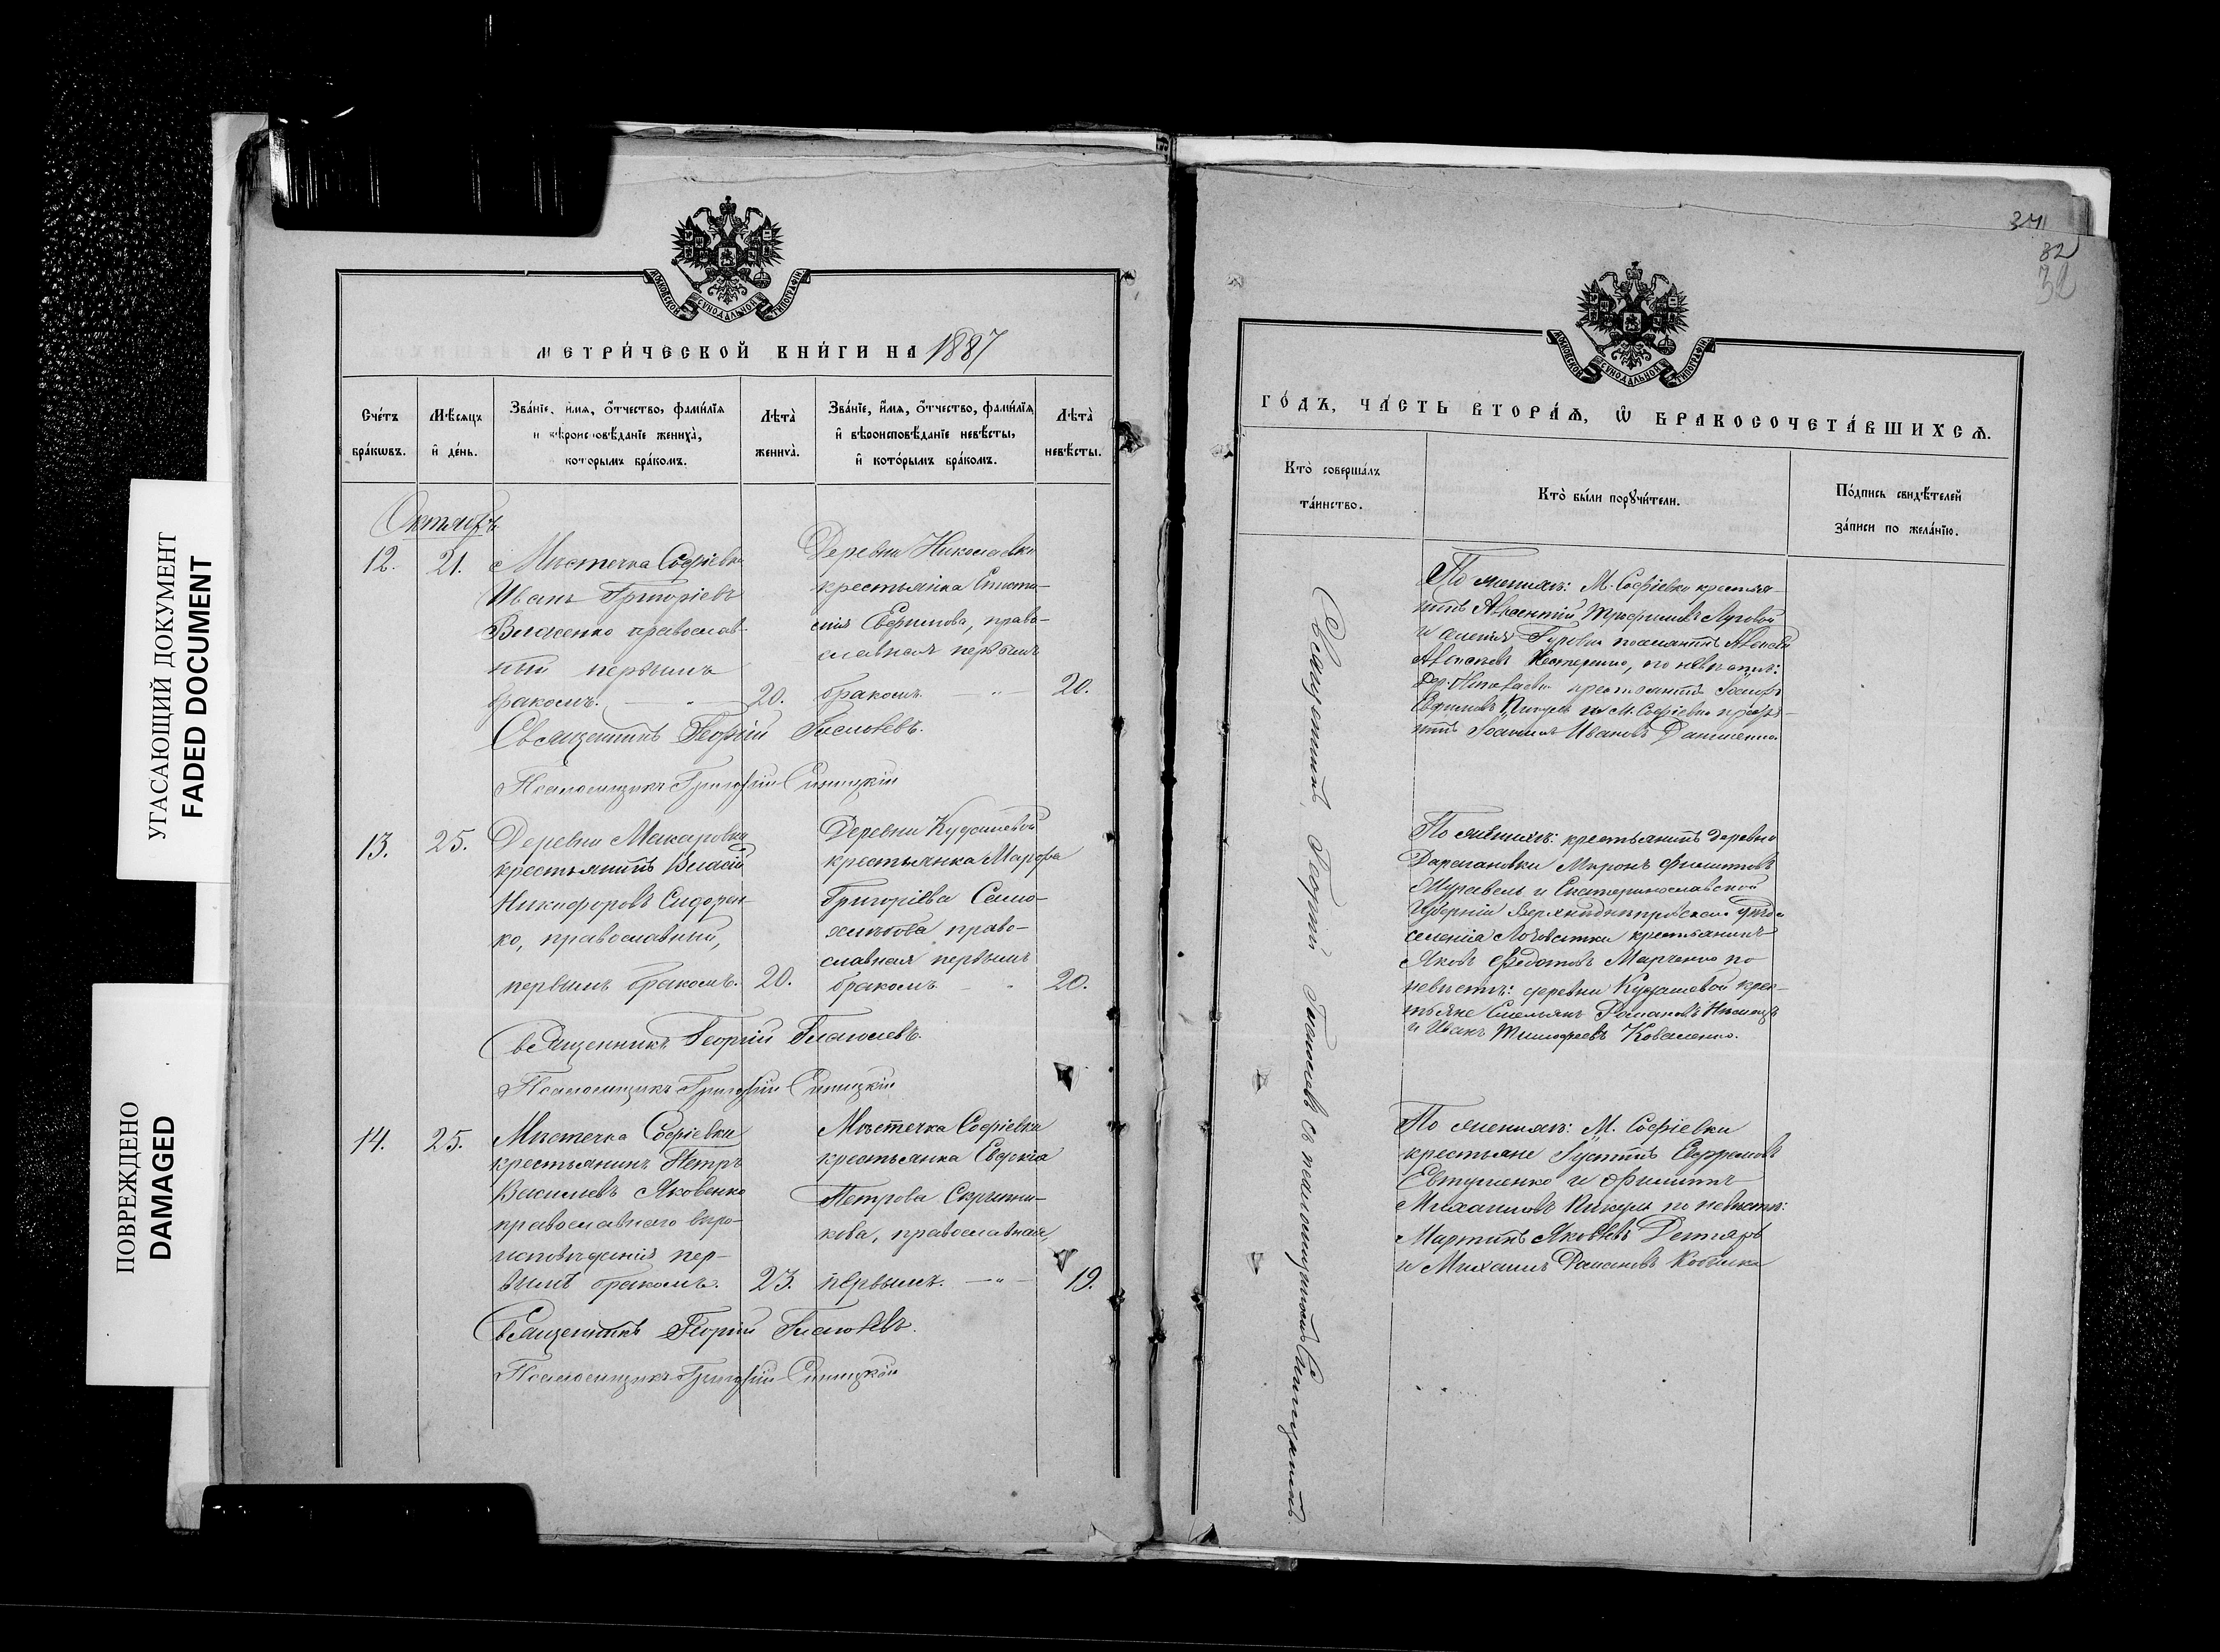 УГАСАЮЩИЙ ДОКУМЕНТ
FADED DOCUMENT
ПОВРЕЖДЕНО
DAMAGED
МОСКОВСКОЙ СУНОДАЛЬНОЙ ТИПОГРАФІИ
МЕТРИ́ЧЕСКОЙ КНИ́ГИ НА 1887
Сче́тъ бра́кѡвъ.
Мѣ́сяцъ и҆ де́нь.
Зва́нїе, и҆́мѧ, ѻ҆́тчество, фами́лїѧ
и вѣроисповѣ́данїе жениха̀,
которымъ бра́комъ.
Лѣта̀ жениха̀.
Зва́нїе, и҆́мѧ, ѻ҆́тчество, фами́лїѧ
и҆ вѣроисповѣ́данїе невѣ́сты,
и҆ кото́рымъ бра́комъ.
Лѣта̀ невѣ́сты.
Октябрь
12. 21.
Мѣстечка Софіевки
Иванъ Григоріевъ
Власенко православ-
ный первымъ
бракомъ. 20.
Деревни Николаевки
крестьянка
Ефимова, право-
славная первымъ
бракомъ 20.
Священникъ Георгій Глаголевъ.
Псаломщикъ Григорій Синицкій
13. 25.
Деревни Макаровки
крестьянинъ Власій
Никифоровъ Сидорен-
ко, православный,
первымъ бракомъ. 20.
Деревни Кудашевой
крестьянка Марфа
Григоріева Само-
хлѣбова право-
славная первымъ
бракомъ 20.
Священникъ Георгій Глаголевъ.
Псаломщикъ Григорій Синицкій
14. 25.
Мѣстечка Софіевки
крестьянинъ Петръ
Васильевъ Яковенко
православнаго вѣро-
исповѣданія пер-
вымъ бракомъ. 23.
Мѣстечка Софіевки
крестьянка Евдокія
Петрова Скрыпни-
кова, православная,
первымъ. 19.
Священникъ Георгій Глаголевъ.
Псаломщикъ Григорій Синицкій
32
МОСКОВСКОЙ СУНОДАЛЬНОЙ ТИПОГРАФІИ
ГО́ДЪ, ЧА́СТЬ ВТОРА́Ѧ, Ѡ҆ БРАКОСОЧЕТА́ВШИХСѦ.
Кто̀ соверша́лъ
та́инство.
Кто̀ бы́ли порꙋчи́тели.
По́дпись свидѣ́телей
за́писи по жела́нїю.
Священникъ Георгій Глаголевъ съ псаломщикомъ Синицкимъ.
По женихѣ: М. Софіевки крестья-
нинъ Авксентій Трофимовъ Луговой
Нестеренко, по невѣстѣ:
дер. Николаевки крестьянинъ
Ефимовъ Пикуль и М. Софіевки
Іоаннъ Ивановъ Данименко
По женихѣ: крестьянинъ деревни
Миронъ Филиповъ
Муравель и Екатеринославской
Губерніи Верхнеднѣпровскаго уѣзда
селенія крестьянинъ
Яковъ Федотовъ Марченко по
невѣстѣ: деревни Кудашевой крес-
тьяне Емельянъ Романовъ
и Иванъ Тимофеевъ Коваленко.
По женихѣ: М. Софіевки
крестьяне Іустинъ Ефремовъ
Евтушенко и Филиппъ
Михаиловъ Пикуль по невѣстѣ:
Мартинъ Яковлевъ Дегтярь
и Михаилъ Романовъ